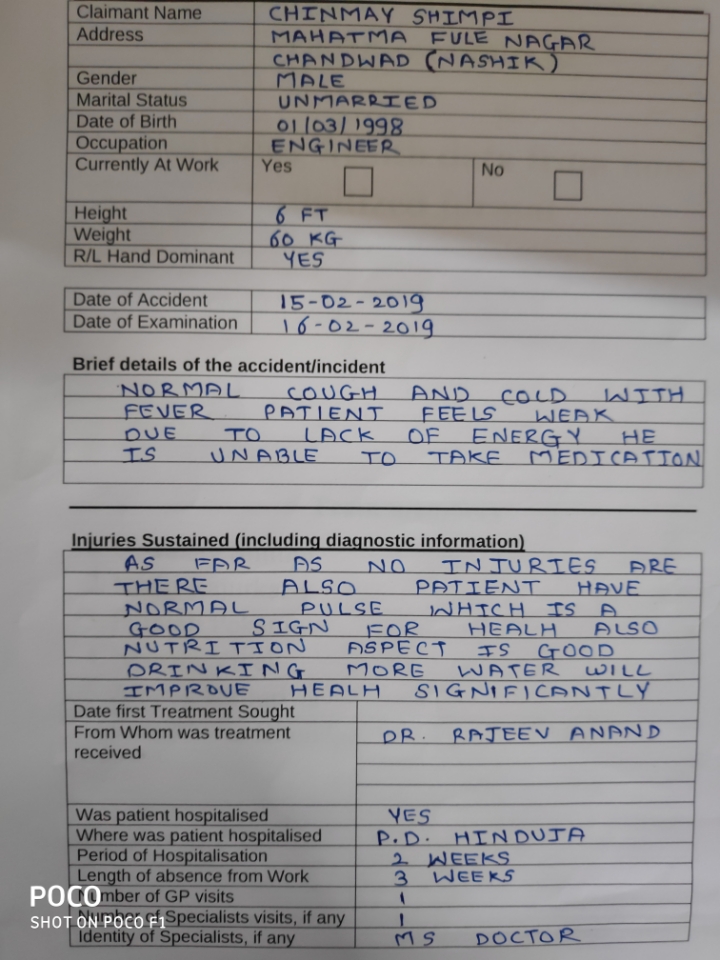 Claimant Name CHINMAY SHIMPI
Address MAHATMA FULE NAGAR
CHANDWAD (NASHIK)
Gender MALE
Marital Status UNMARRIED
Date of Birth 01/03/1998
Occupation ENGINEER
Currently At Work Yes No
Height 6 FT
Weight 60 KG
R/L Hand Dominant YES
Date of Accident 15-02-2019
Date of Examination 16-02-2019
Brief details of the accident/incident
NORMAL COUGH AND COLD WITH
FEVER PATIENT FEELS WEAK
DUE TO LACK OF ENERGY HE
IS UNABLE TO TAKE MEDICATION
Injuries Sustained (including diagnostic information)
AS FAR AS NO INJURIES ARE
THERE ALSO PATIENT HAVE
NORMAL PULSE WHICH IS A
GOOD SIGN FOR HEALH ALSO
NUTRITION ASPECT IS GOOD
DRINKING MORE WATER WILL
IMPROVE HEALH SIGNIFICANTLY
Date first Treatment Sought
From Whom was treatment DR. RAJEEV ANAND
received
Was patient hospitalised YES
Where was patient hospitalised P.D. HINDUJA
Period of Hospitalisation 2 WEEKS
Length of absence from Work 3 WEEKS
Number of GP visits 1
Number of Specialists visits, if any 1
Identity of Specialists, if any MS DOCTOR
POCO
SHOT ON POCO F1